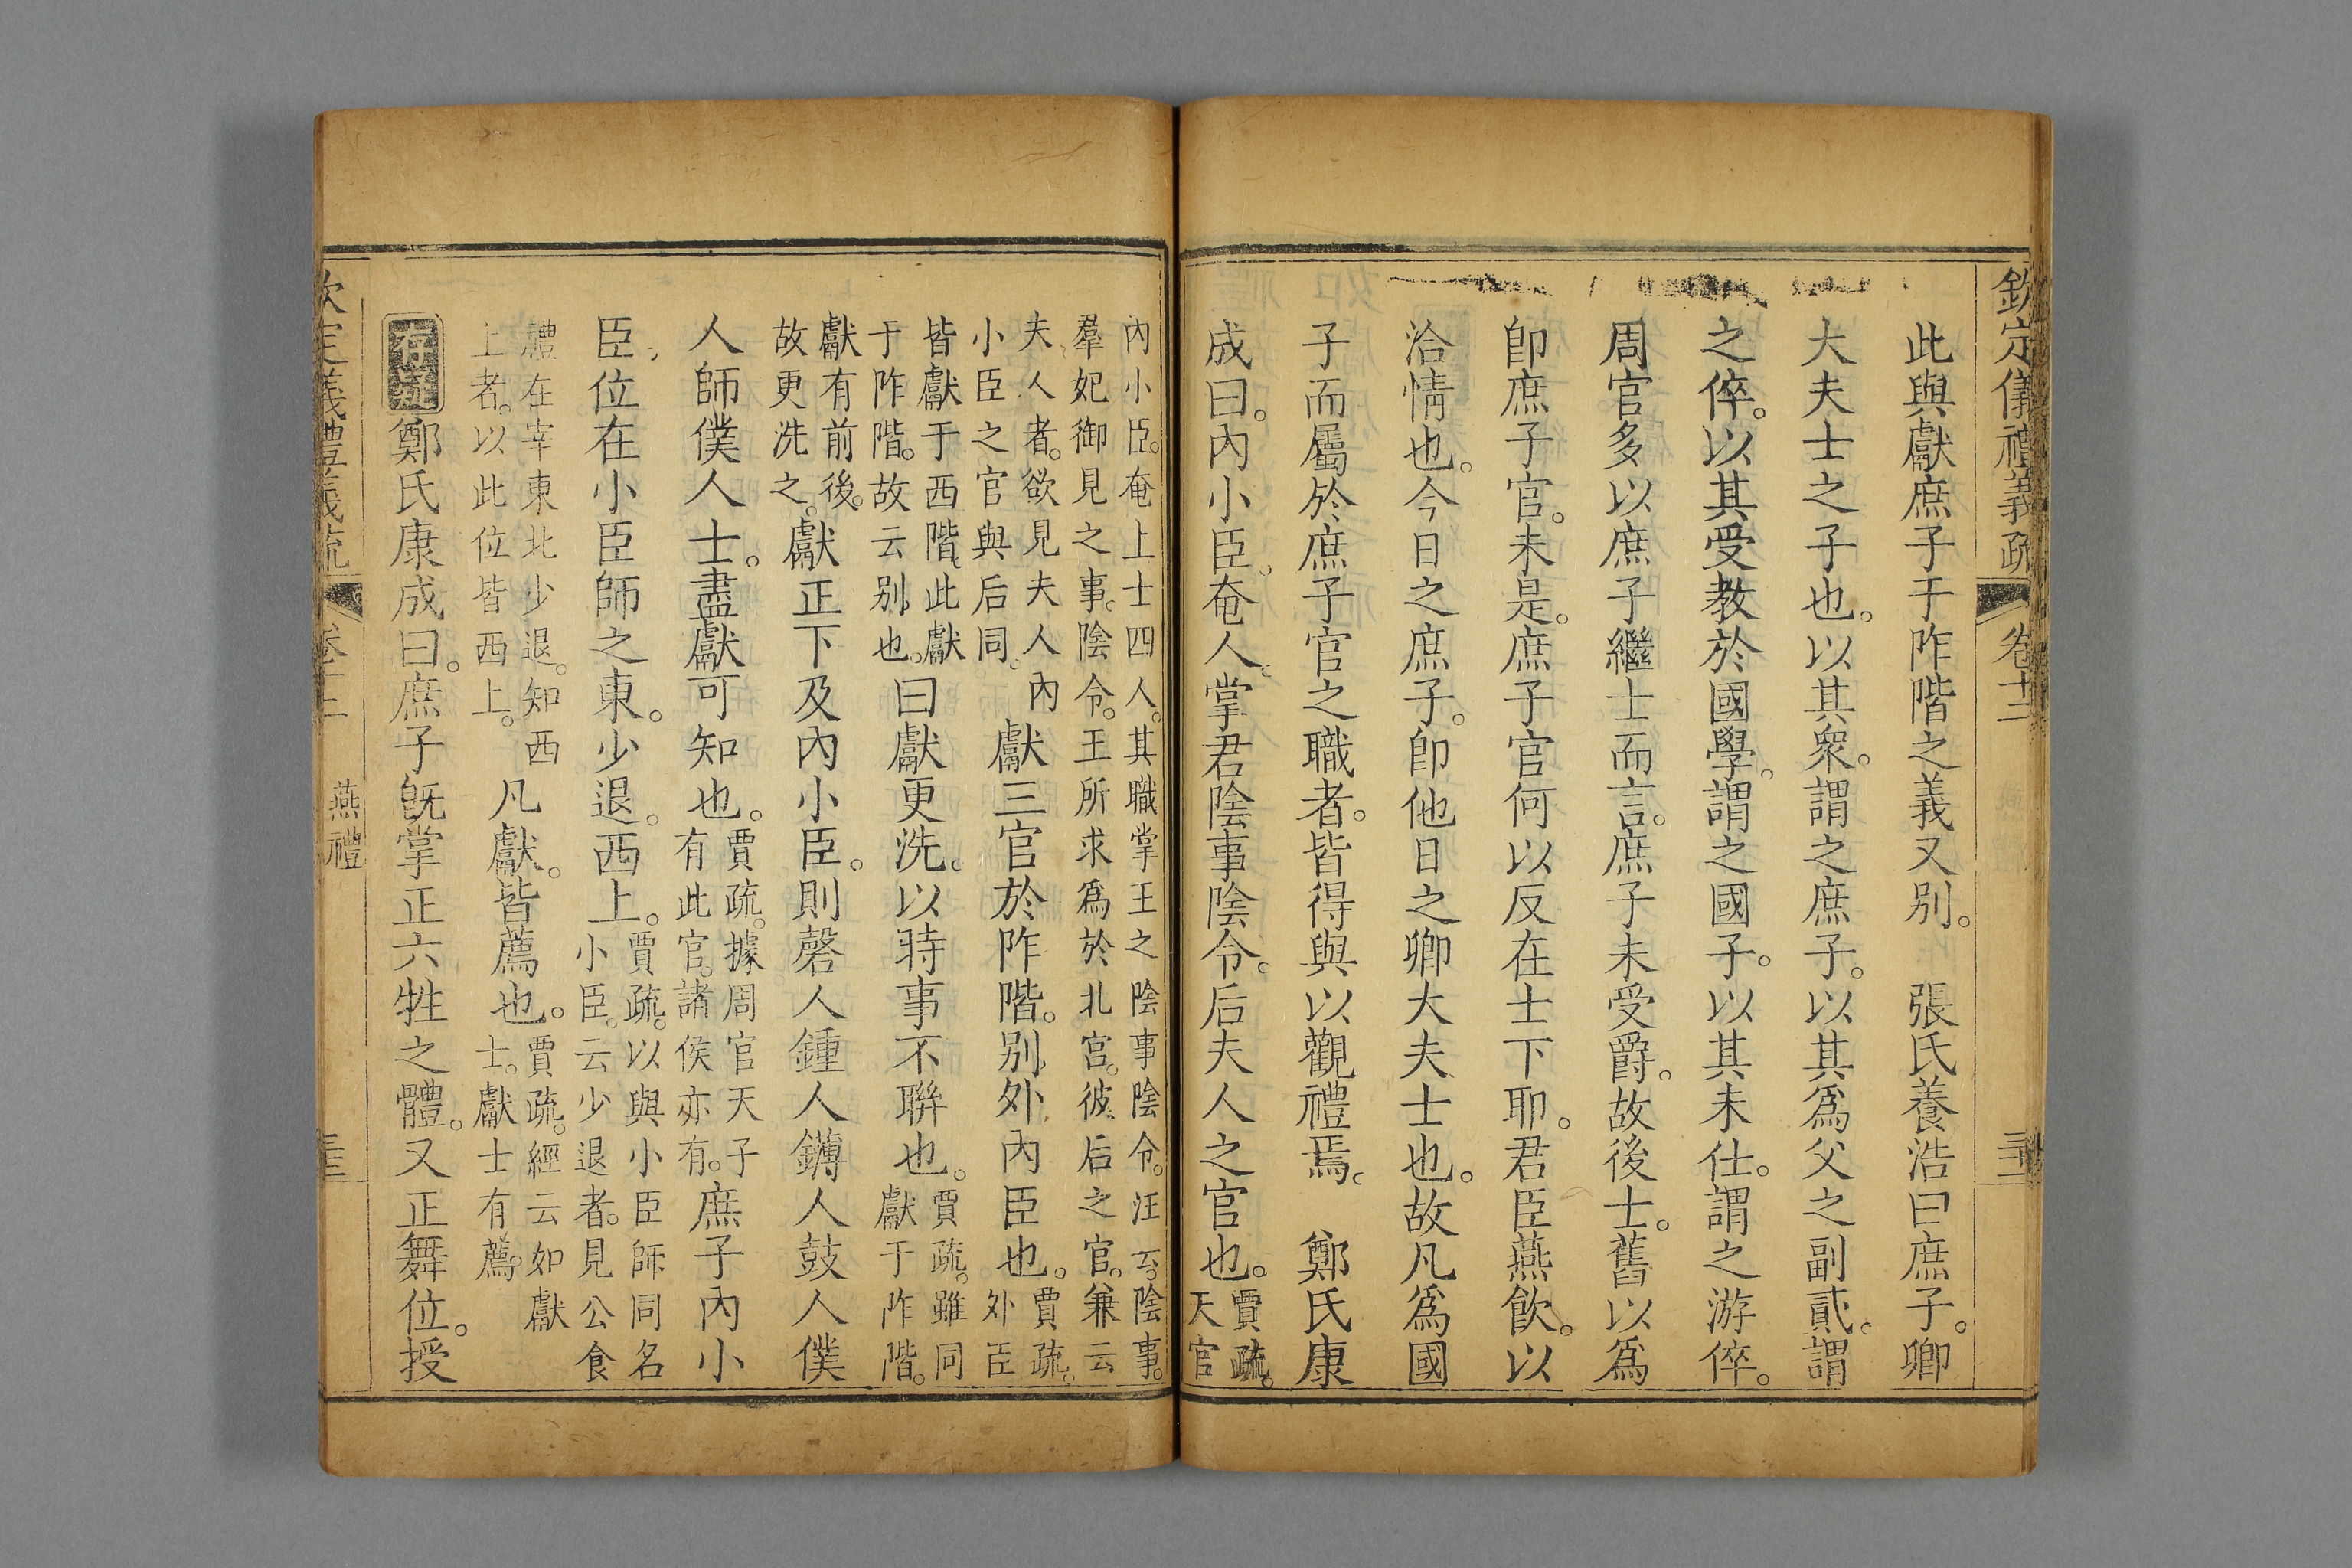 欽定儀禮義疏 卷十
此與獻庶子于阼階之義又別。 張氏養浩曰庶子。卿
大夫士之子也。以其衆。謂之庶子。以其爲父之副貳。謂
之倅。以其受教於國學。謂之國子。以其未仕。謂之游倅。
周官多以庶子繼士而言。庶子未受爵。故後士。舊以爲
卽庶子官。未是。庶子官何以反在士下耶。君臣燕飲。以
洽情也。今日之庶子。卽他日之卿大夫士也。故凡爲國
子而屬於庶子官之職者。皆得與以觀禮焉。 鄭氏康
成曰。內小臣。奄人。掌君陰事陰令。后夫人之官也。賈疏。天官
內小臣。奄上士四人。其職掌王之陰事陰令。注云。陰事。
羣妃御見之事。陰令。王所求爲於北宮。彼后之官。兼云
夫人者。欲見夫人內小臣之官與后同。獻三官於阼階。別外內臣也。賈疏。外臣
皆獻于西階。此獻于阼階。故云別也。曰獻更洗。以時事不聯也。賈疏。雖同獻于阼階。
獻有前後。故更洗之。獻正下及內小臣。則磬人鍾人鏄人鼓人僕
人師僕人士。盡獻可知也。賈疏。據周官天子有此官。諸侯亦有。庶子內小
臣。位在小臣師之東。少退。西上。賈疏。以與小臣師同名小臣。云少退者。見公食
禮在宰東北少退。知西上者。以此位皆西上。凡獻。皆薦也。賈疏。經云如獻士。獻士有薦。
存疑鄭氏康成曰。庶子既掌正六牲之體。又正舞位。授
定儀禮義疏 燕禮